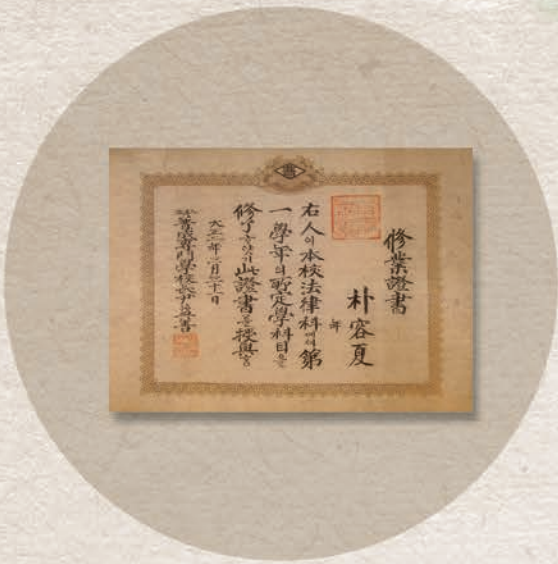 修業證書
朴容夏
年
右人이本校法律科에서第
一學年의定學科目을
修了此證書를授與홈
大正年三月三十一日
普成專門學校長尹益善